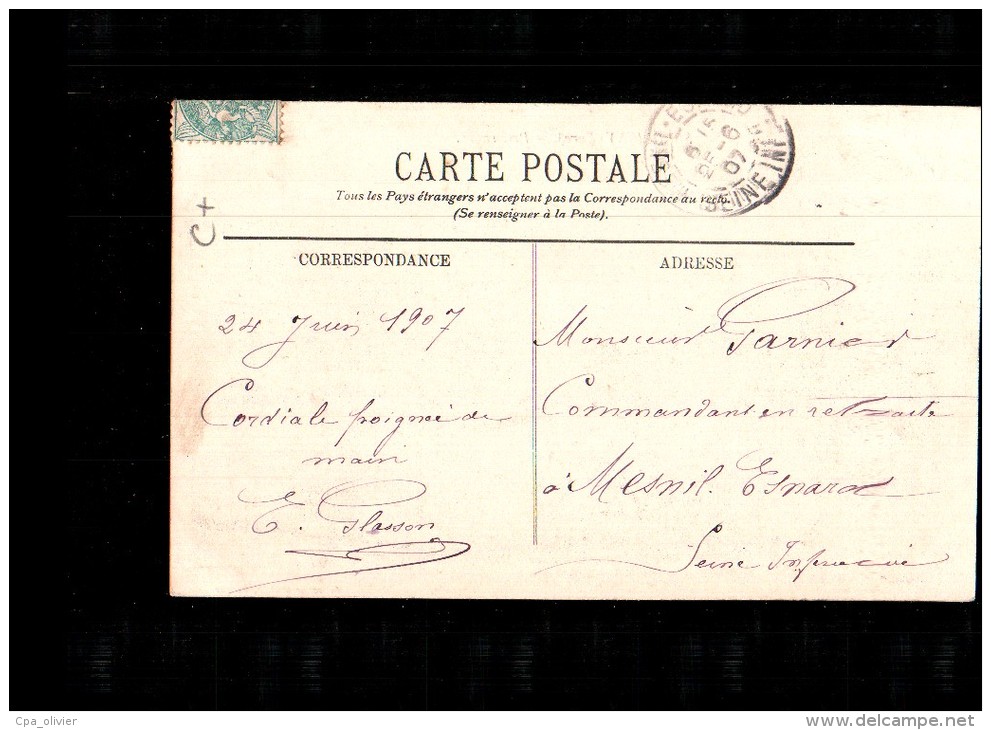 CARTE POSTALE
Tous les Pays étrangers n'acceptent pas la Correspondance au recto.
(Se renseigner à la Poste).
C+
CORRESPONDANCE
24 Juin 1907
Cordiale poignée de
main
E. Glasson
ADRESSE
Monsieur Garnier
Commandant en retraite
à Mesnil. Esnard
Seine Inférieure
SEINE INF
07
Cpa_olivier
www.delcampe.net